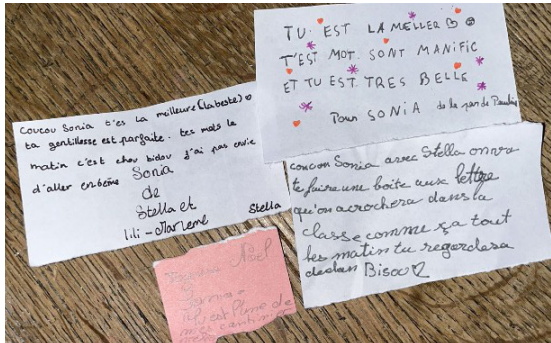 TU EST LA MELLER
T'EST MOT SONT MANIFIC
ET TU EST TRES BELLE
Pour SONIA de la par de
coucou Sonia t'es la meilleure (la beste)
ta gentillesse est parfaite. tes mots le
matin c'est chou bidou j'ai pas envie
d'aller en 6ème
Sonia
de
Stella et
lili-Marlene
Stella
coucou Sonia avec Stella on va
te faire une boîte aux lettre
qu'on acrochera dans la
classe comme ça tout
les matin tu regardera
dedan Bisou
Noël